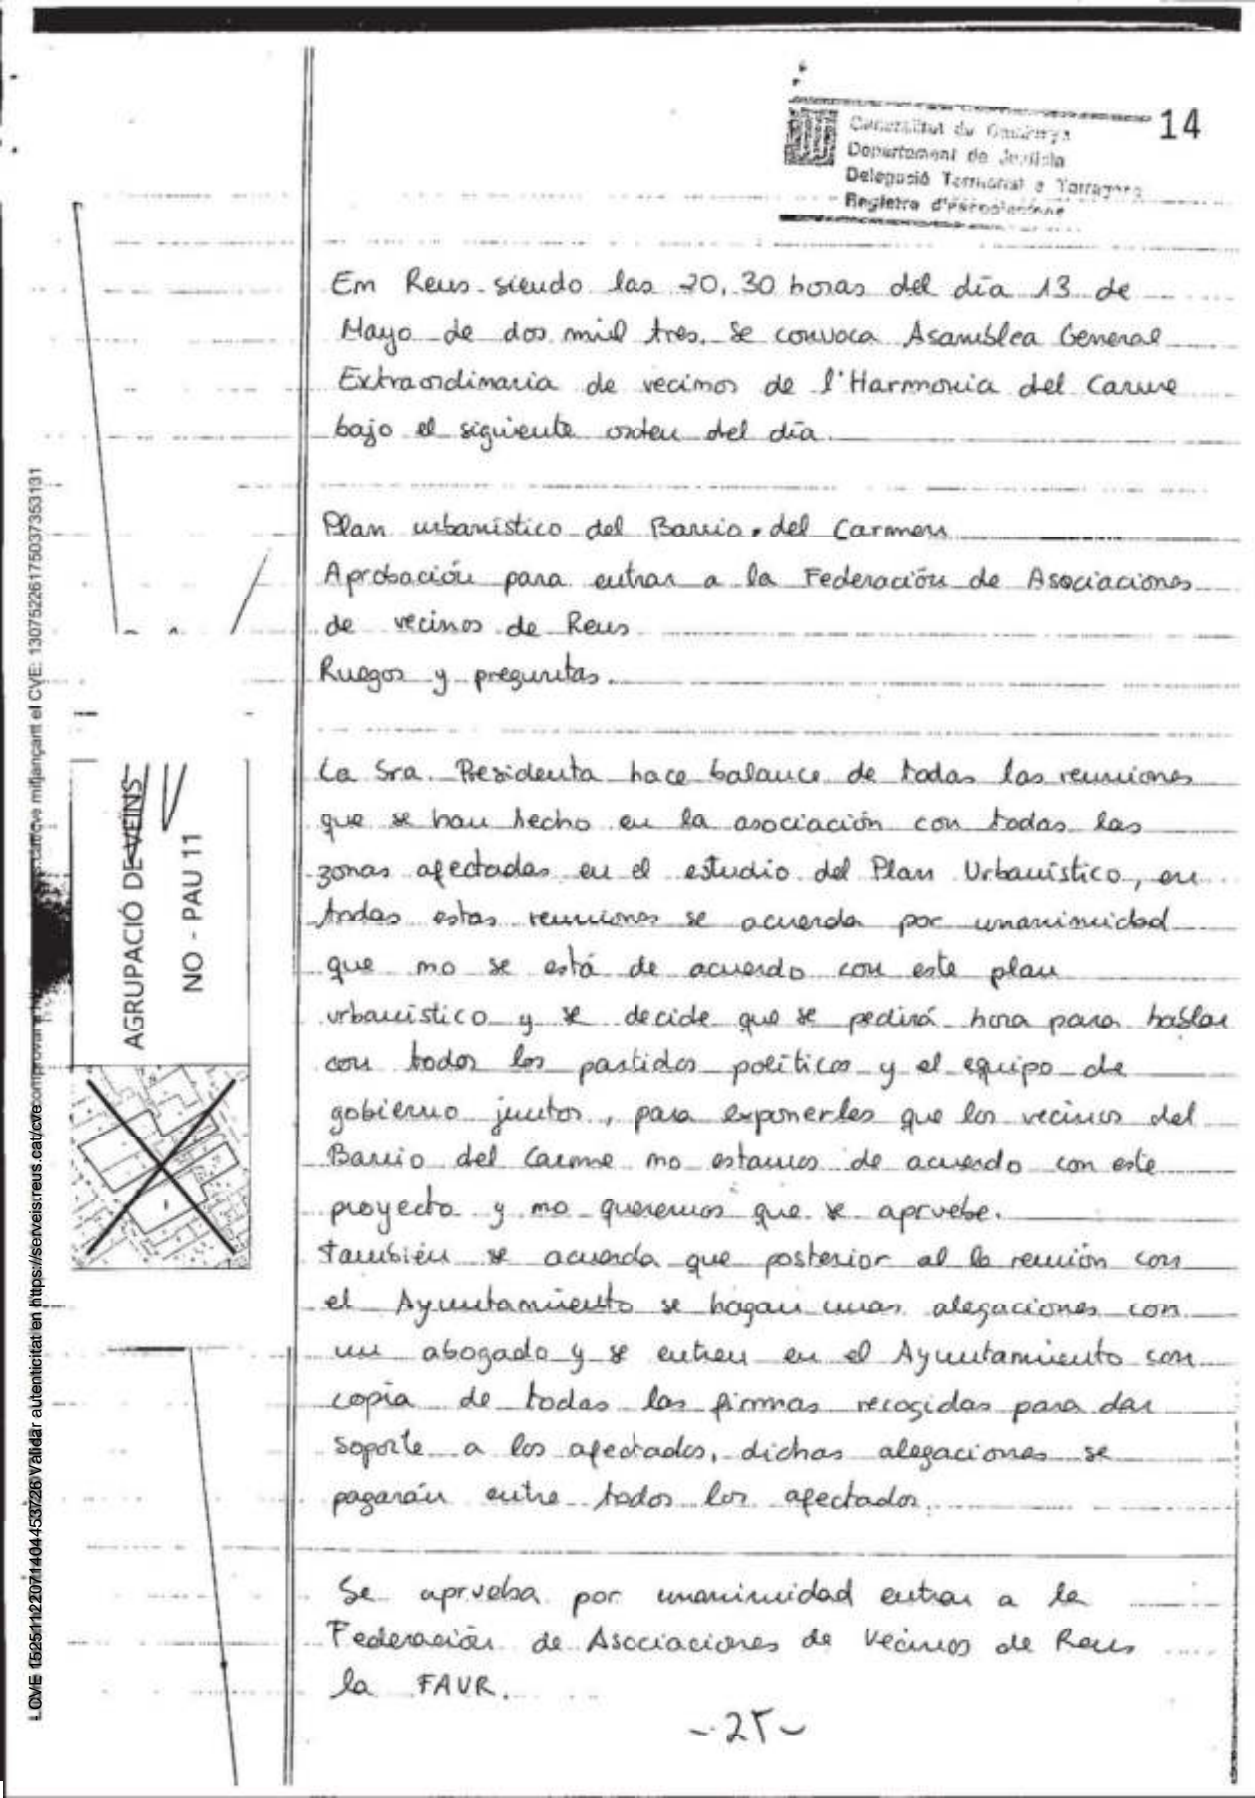 14
Generalitat de Catalunya
Departament de Justícia
Delegació Territorial a Tarragona
Registre d'
En Reus siendo las 20,30 horas del día 13 de
Mayo de dos mil tres, se convoca Asamblea General
Extraordinaria de vecinos de l'Harmonia del Carme
bajo el siguiente orden del día.
Plan urbanístico del Barrio del Carmen
Aprobación para entrar a la Federación de Asociaciones
de vecinos de Reus
Ruegos y preguntas.
La Sra. Presidenta hace balance de todas las reuniones
que se han hecho en la asociación con todas las
zonas afectadas en el estudio del Plan Urbanístico, en
todas estas reuniones se acuerda por unanimidad
que no se está de acuerdo con este plan
urbanístico y se decide que se pedirá hora para hablar
con todos los partidos políticos y el equipo de
gobierno juntos, para exponerles que los vecinos del
Barrio del Carme no estamos de acuerdo con este
proyecto y no queremos que se apruebe.
También se acuerda que posterior al la reunión con
el Ayuntamiento se hagan unas alegaciones con
un abogado y se entren en el Ayuntamiento con
copia de todas las firmas recogidas para dar
soporte a los afectados, dichas alegaciones se
pagarán entre todos los afectados.
Se aprueba por unanimidad entrar a la
Federación de Asociaciones de Vecinos de Reus
la FAVR.
-25-
AGRUPACIÓ DE VEÏNS
NO - PAU 11
mitjançant el CVE: 13075226175037353131
Validar autenticitat en https://serveis.reus.cat/cve